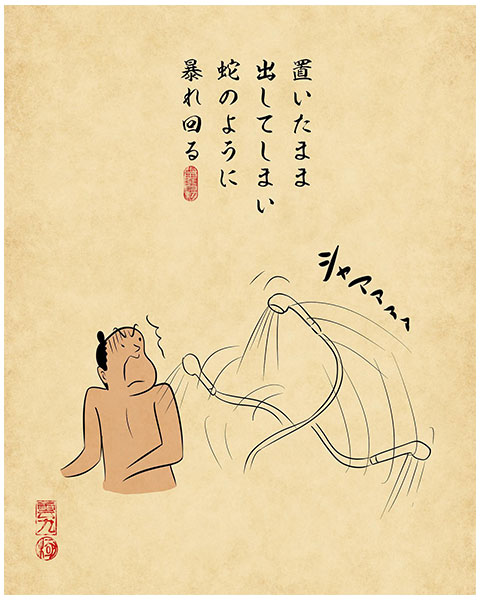 置いたまま
出してしまい
蛇のように
暴れ回る
シャアァァァ